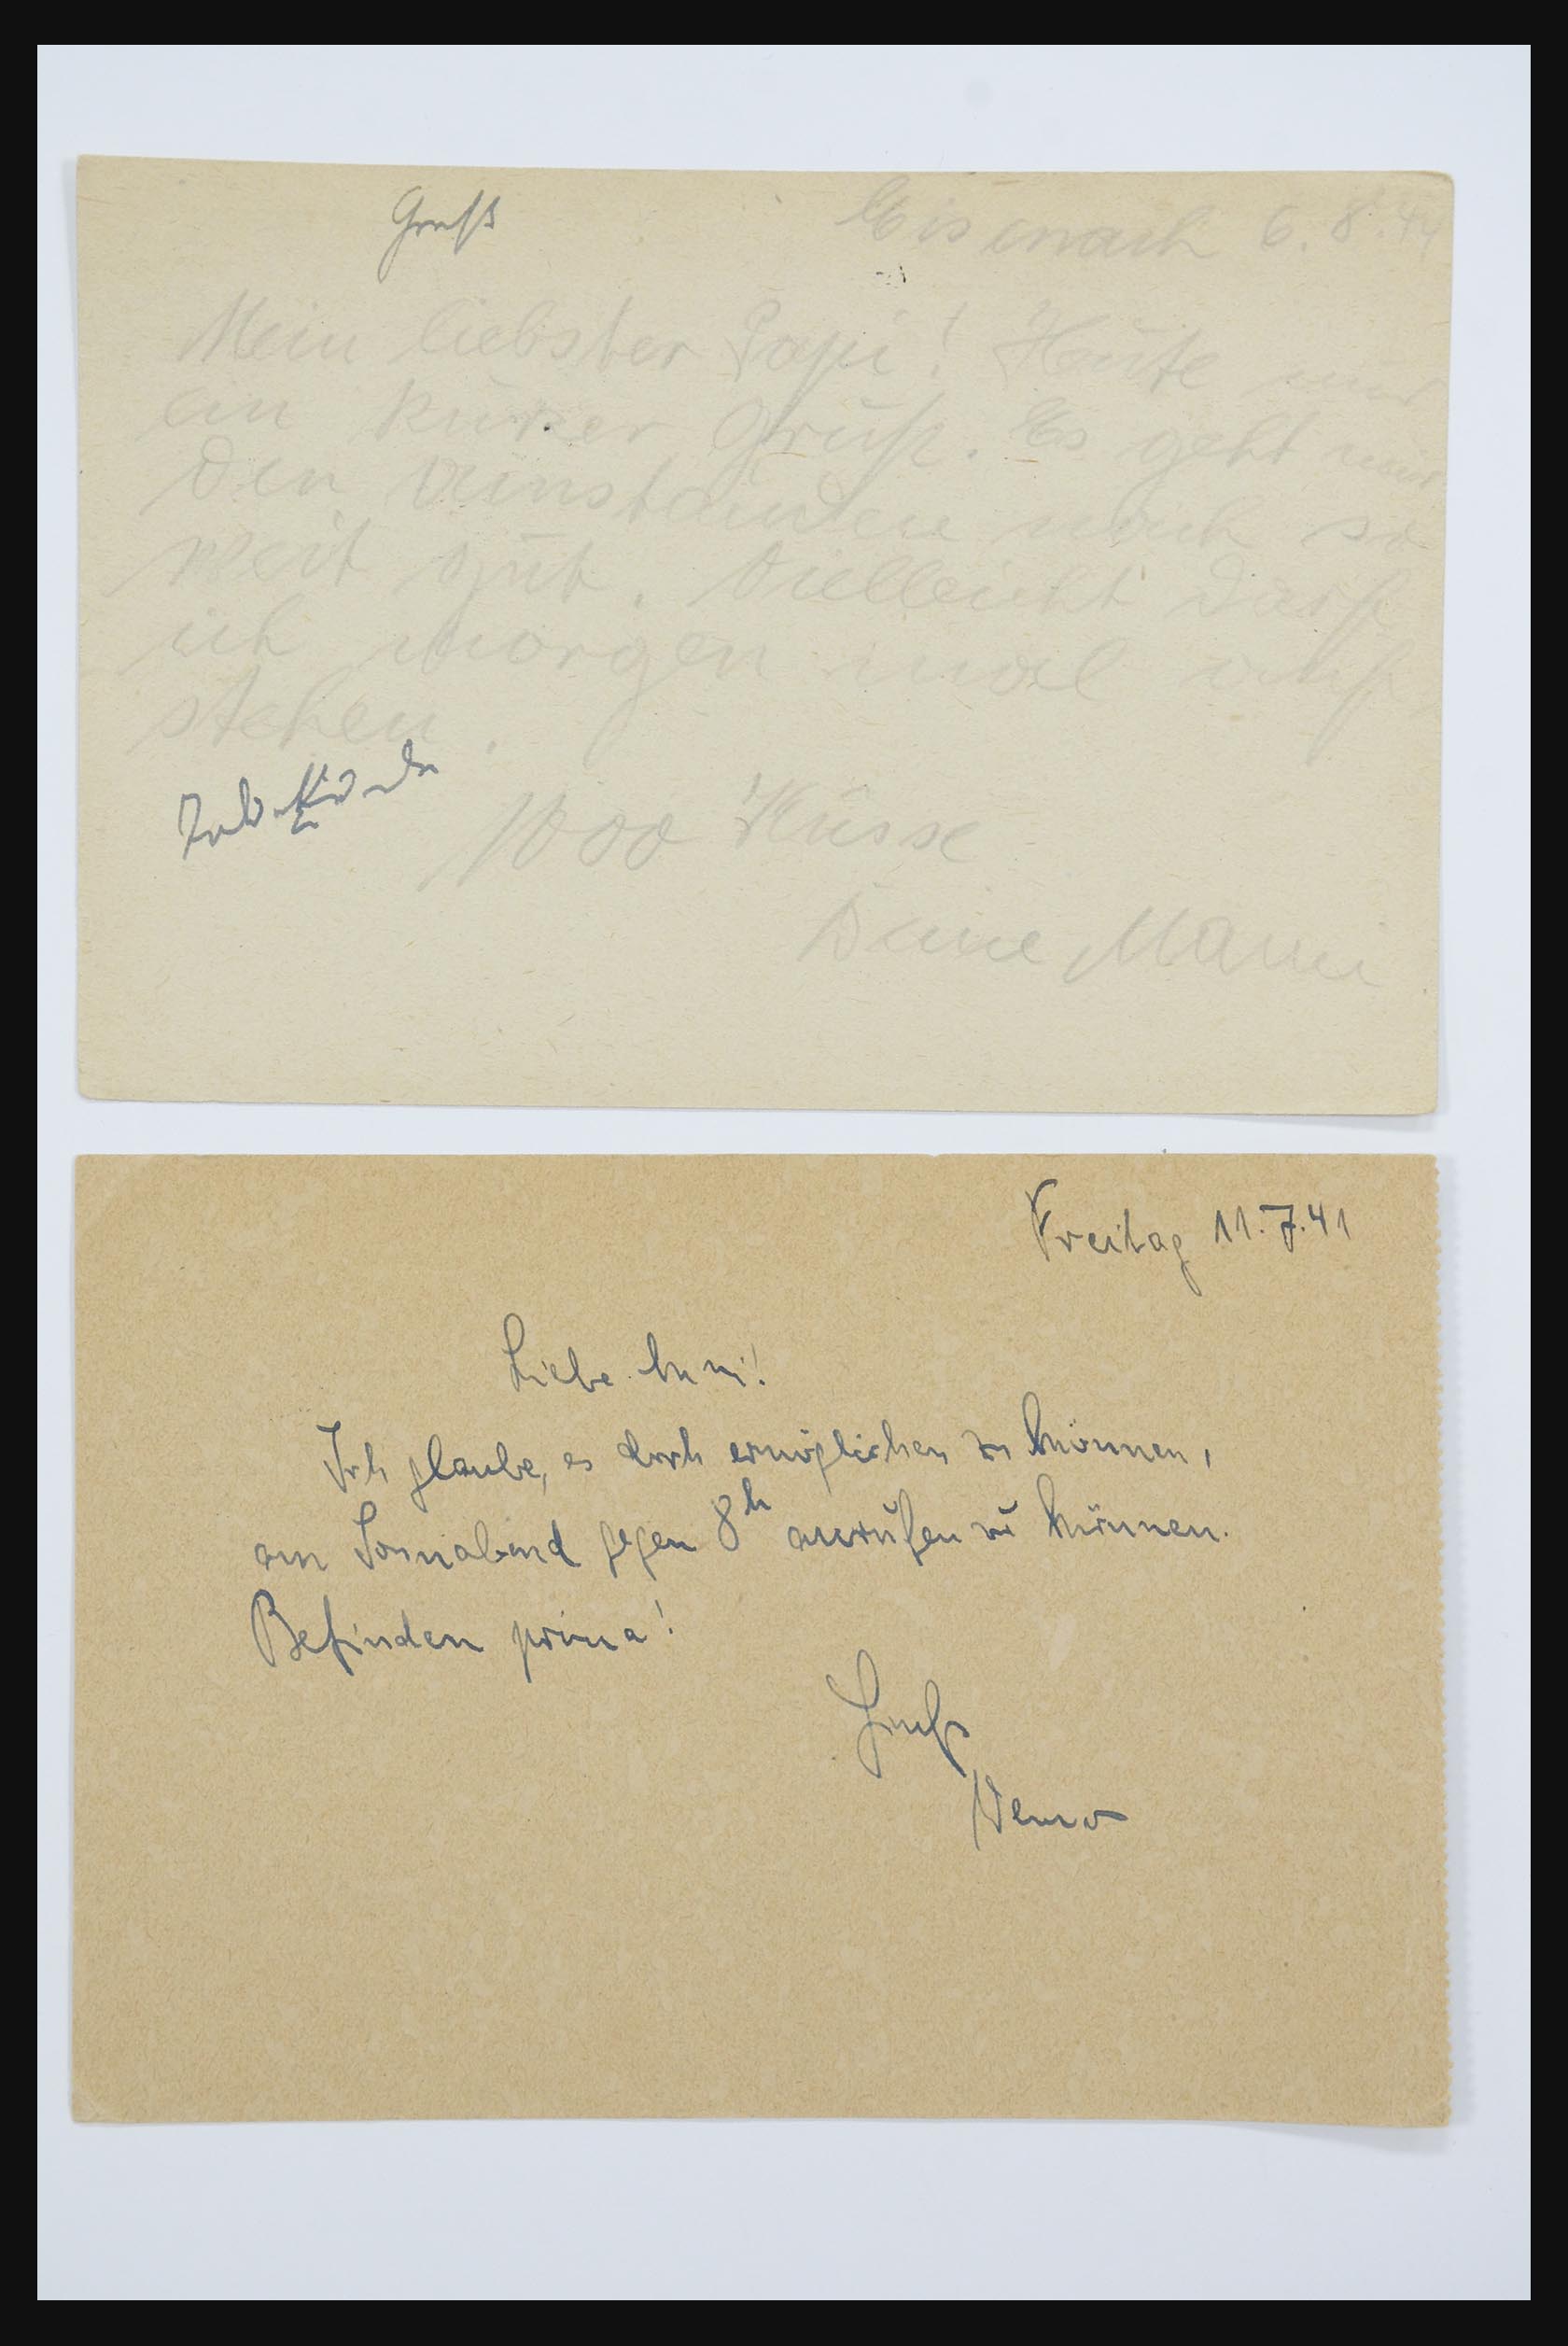 Gruß
Eisenach 6.8.44
Mein liebster Papi! Heute nur
ein kurzer Gruß. Es geht mir
den Umständen nach so
weit gut. Vielleicht darf
ich morgen mal auf
stehen.
1000 Küsse
Deine Mami
Freitag 11.7.41
Liebe
Ich glaube, es doch ermöglichen zu können,
am Sonnabend gegen 8h anrufen zu können.
Befinden prima!
Gruß